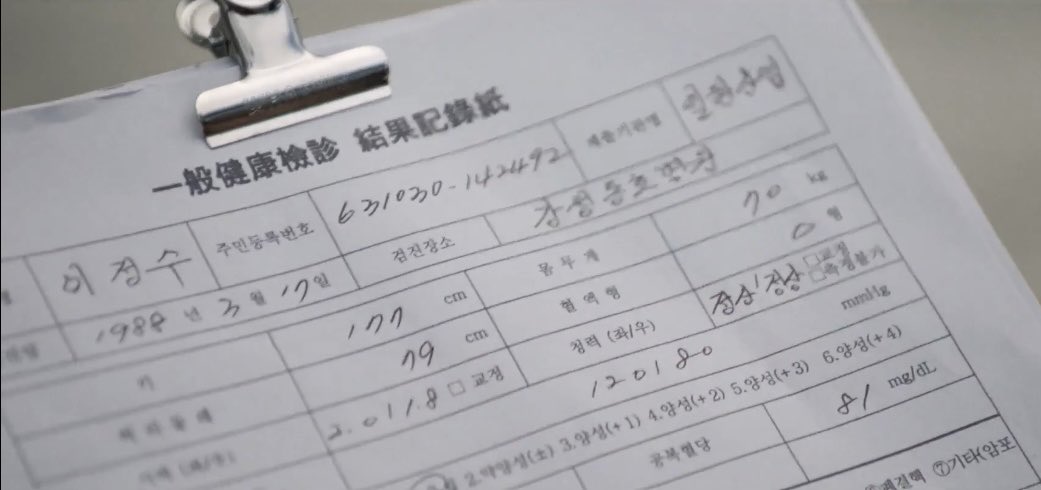 一般健康檢診 結果記錄紙
이정수 주민등록번호 631030-142492 제출기관명
검진장소
1988 년 3 월 17 일 몸무게 70 kg
키 177 cm 혈액형 O 형
허리둘레 79 cm 청력 (좌/우) 정상/정상 □교정 □측정불가
시력 (좌/우) 2.0/1.8 □ 교정 120/80 mmHg
2.약양성(±) 3.양성(+1) 4.양성(+2) 5.양성(+3) 6.양성(+4)
공복혈당 81 mg/dL
폐결핵 ⑦기타(암포